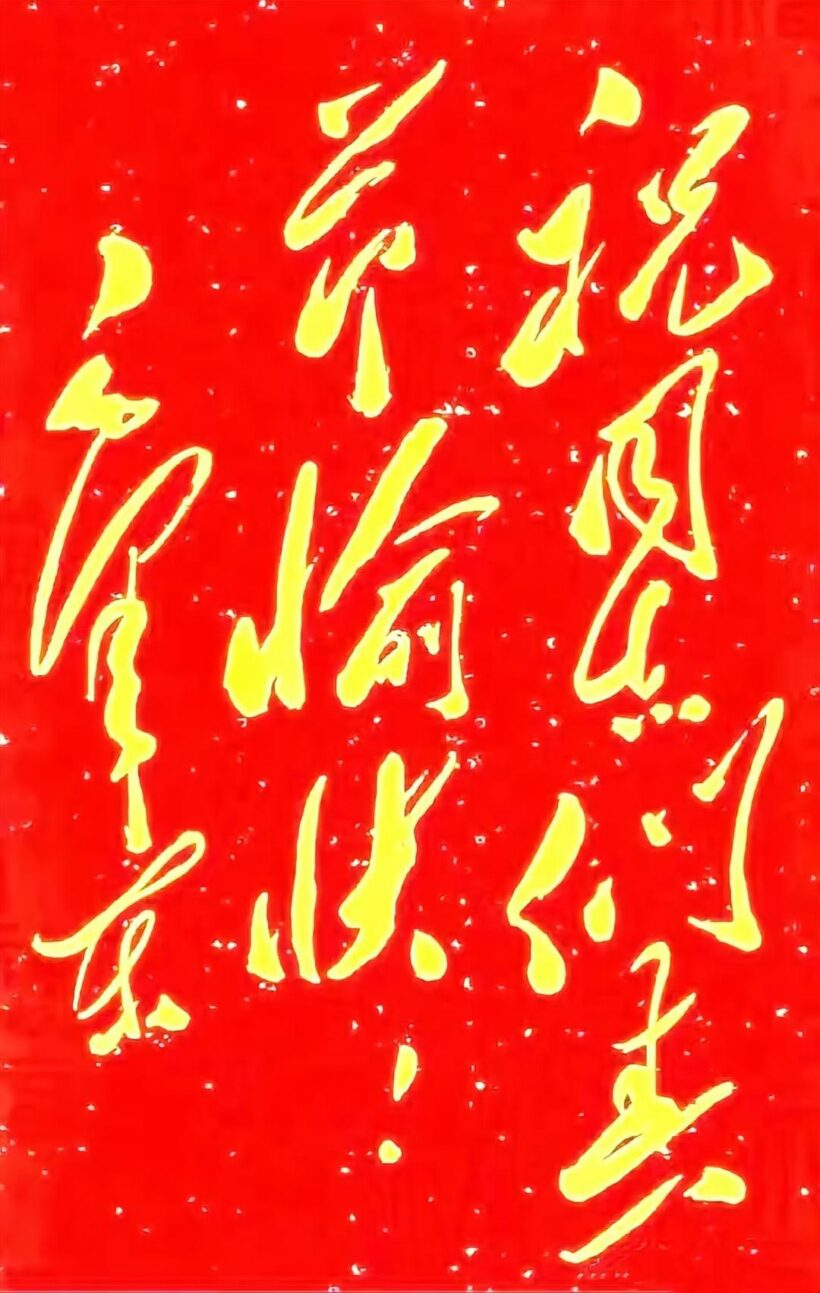 祝同志们春
节愉快！
泽东